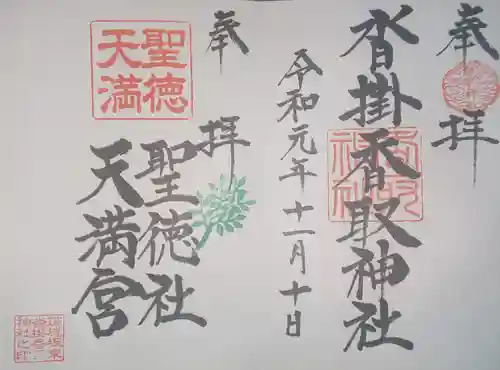 奉拝
沓掛香取神社
令和元年十一月十日
奉拝
聖徳社
天満宮
聖徳
天満